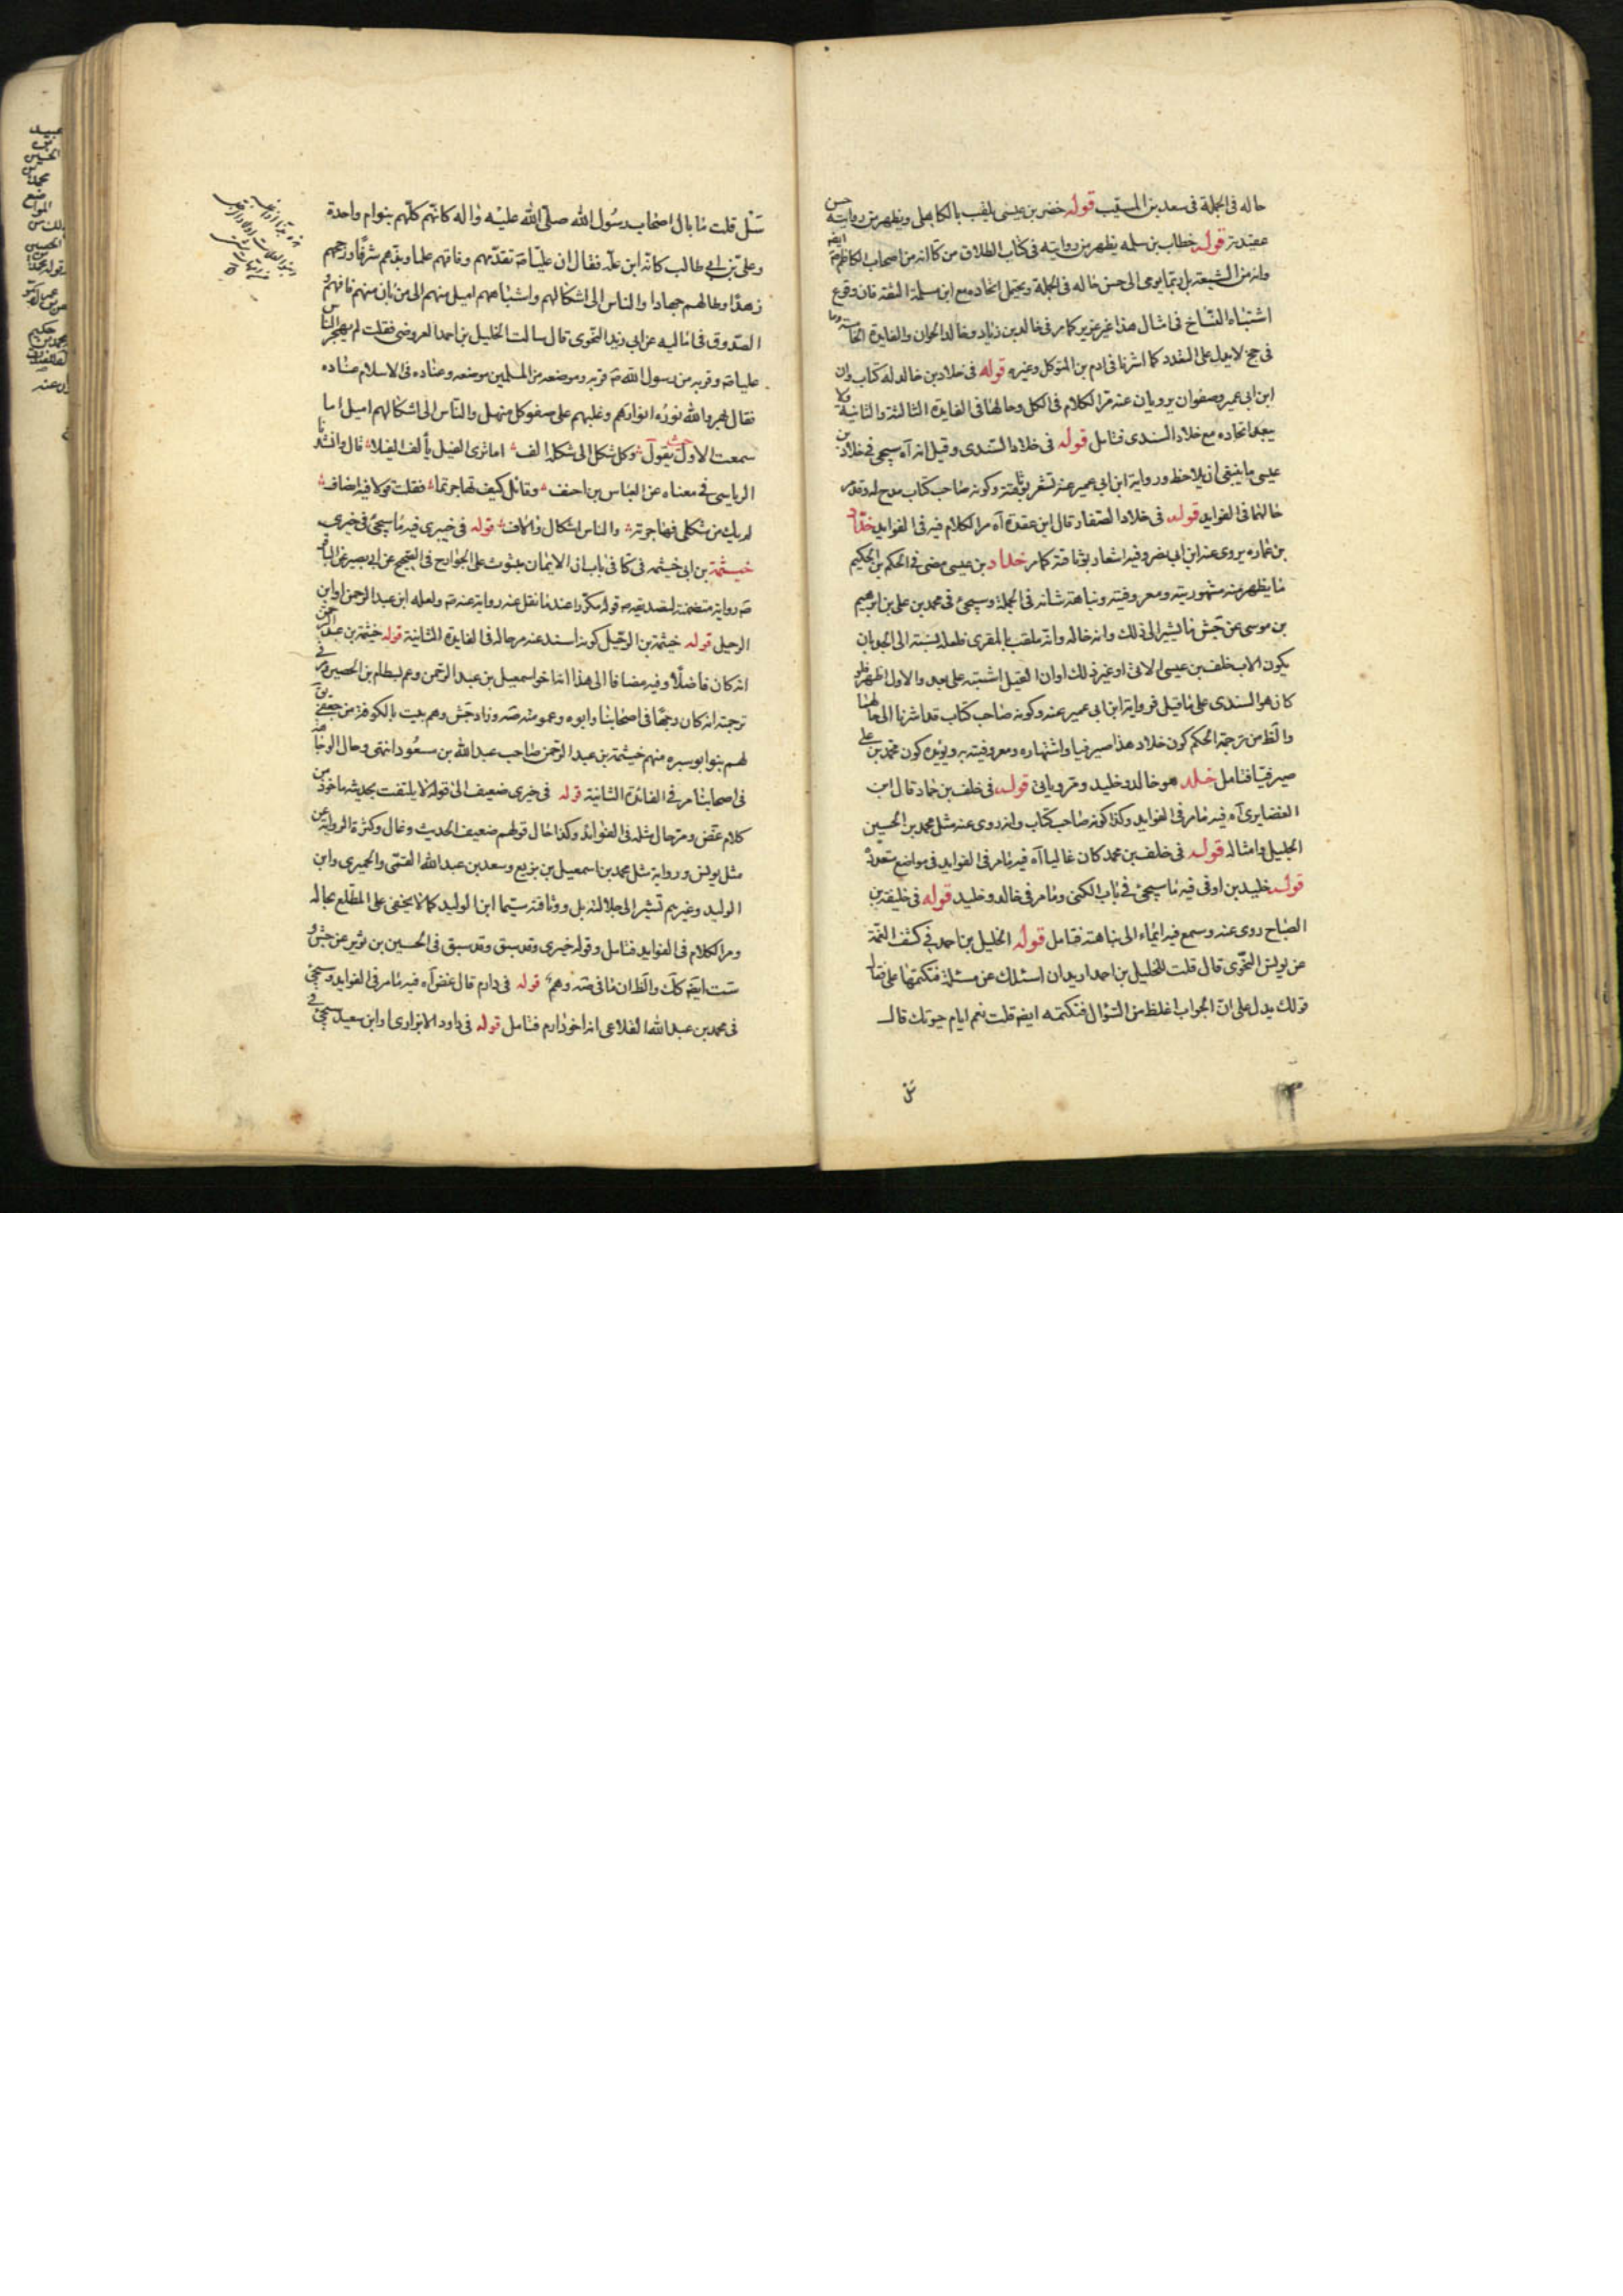 حاله فى الجملة فى سعد بن المسيب قوله خضر بن عيسى يلقب بالكابلى ويظهر من روايته حسن
عقيدته قوله خطاب بن سلمه يظهر من روايته فى كتاب الطلاق من كا انه من اصحاب الكاظم ايضا
وانه من الشيعة بل ربما يومى الى حسن حاله فى الجملة ويحتمل اتحاده مع ابن مسلمة الثقة فان وقوع
اشتباه النساخ فى امثال هذا غير عزيز كما مر فى خالد بن زياد وخالد الجوان والفايدة الخامسة وما
فى جخ لا يدل على التعدد كما اشرنا فى ادم بن المتوكل وغيره قوله فى خلاد بن خالد له كتاب وان
ابن ابى عمير وصفوان يرويان عنه مر الكلام فى الكل وحالهما فى الفايدة الثالثة والثانية ولا
يبعد اتحاده مع خلاد السندى فتامل قوله فى خلاد السندى وقيل انه آه سيجئ فى خلاد بن
عيسى ما ينبغى ان يلاحظ ورواية ابن ابى عمير عنه تشعر بوثاقته وكونه صاحب كتاب مدح له وقد مر
حالهما فى الفوايد قوله فى خلاد الصفار قال ابن عقدة آه مر الكلام فيه فى الفوايد خلاد
بن عماره يروى عنه ابن ابى نصر وفيه اشعار بوثاقته كما مر خلاد بن عيسى مضى فى الحكم بن الحكيم
ما يظهر منه مشهوريته ومعروفيته ونباهة شانه فى الجملة وسيجئ فى محمد بن على بن ابرهيم
بن موسى عن جش ما يشير الى ذلك وانه خاله وانه ملقب بالمقرى فلعله نسبته الى الجواب ان
يكون الاب خلف بن عيسى الاتى او غير ذلك او ان القيل اشتبه على بعد والاول اظهر ولو
كان هو السندى على ما قيل فرواية ابن ابى عمير عنه وكونه صاحب كتاب قد اشرنا الى حالهما
والظ من ترجمة الحكم كون خلاد هذا صيرفيا واشتهاره ومعروفيته به ويؤيده كون محمد بن على
صيرفيا فتامل خلد هو خالد وخليد ومر وياتى قوله فى خلف بن حماد قال ابن
الغضايرى آه فيه ما مر فى الفوايد وكذا كونه صاحب كتاب وانه روى عنه مثل محمد بن الحسين
الجليل وامثاله قوله فى خلف بن محمد كان غاليا آه فيه ما مر فى الفوايد فى مواضع متعددة
قوله خليد بن اوفى فيه ما سيجئ فى باب الكنى وما مر فى خالد وخليد قوله فى خليفة بن
الصباح روى عنه وسمع فيه ايماء الى نباهته فتامل قوله الخليل بن احمد فى كشف الغمة
عن يونس النحوى قال قلت للخليل بن احمد اريد ان اسئلك عن مسئلة فتكتمها على فقال
قولك يدل على ان الجواب اغلظ من السؤال فتكتمه ايضا قلت نعم ايام حيوتك قال
سل
سل قلت ما بال اصحاب رسول الله صلى الله عليه واله كانهم كلهم بنوام واحدة
وعلى بن ابى طالب كانه ابن علة فقال ان عليا تقدمهم وفاقهم علما وبذهم شرفا ورجحهم
زهدا وطالهم جهادا والناس الى اشكالهم واشباههم اميل منهم الى من بان منهم فافهم و
الصدوق فى اماليه عن ابى زيد النحوى قال سالت الخليل بن احمد العروضى فقلت لم يهجر الناس
عليا وقربه من رسول الله قربه وموضعه من المسلمين موضعه وعناده فى الاسلام عناده
فقال بهر والله نوره انوارهم وغلبهم على صفو كل منهل والناس الى اشكالهم اميل اما
سمعت الاول حيث يقول وكل شكل الى شكله الف اما ترى الفيل يألف الفيلا قال وانشدنا
الرياسى فى معناه عن العباس بن احنف وقائل كيف تهاجرتما فقلت قولا فيه انصاف
لم يك من شكلى فهاجرته والناس اشكال والاف قوله فى خيبرى فيه ما سيجئ فى خيرى
خيثمة بن ابى خيثمه فى كا فى باب ان الايمان مبثوث على الجوارح فى الصحيح عن ابى بصير عن الباقر
رواية متضمنة لتصديقه قوله مكررا عند ما نقل عنه رواية عنه ولعله ابن عبد الرحمن او ابن
الرحيل قوله خيثمة بن الرحيل كونه اسند عنه مر حاله فى الفايدة الثانية قوله خيثمة بن عبد الرحمن
انه كان فاضلا وفيه مضافا الى هذا انه اخو اسمعيل بن عبد الرحمن وعم بسطام بن الحصين ومر فى
ترجمته انه كان وجها فى اصحابنا وابوه وعمومته وزاد جش وهم بيت بالكوفة من جعفى يق
لهم بنو ابو سبره منهم خيثمة بن عبد الرحمن صاحب عبد الله بن مسعود انتهى وحال الوجاهة
فى اصحابنا مر فى الفائدة الثانية قوله فى خيرى ضعيف الى قوله لا يلتفت بحديثه ماخوذ من
كلام غض ومر حال مثله فى الفوايد وكذا حال قولهم ضعيف الحديث وغال وكثرة الرواية عن
مثل يونس ورواية مثل محمد بن اسمعيل بن بزيع وسعد بن عبد الله القمى والحميرى وابن
الوليد وغيرهم تشير الى جلالته بل ووثاقته سيما ابن الوليد كما لا يخفى على المطلع بحاله
ومر الكلام فى الفوايد فتامل وقوله خيرى وقد سبق وقد سبق فى الحسين بن ثوير عن جش و
ست ايضا كك والظ ان ما فى وهم قوله فى دارم قال غض آه فيه ما مر فى الفوايد وسيجئ
فى محمد بن عبد الله القلاعى انه اخو دارم فتامل قوله فى داود الابزارى او ابن سعيد سيجئ فى